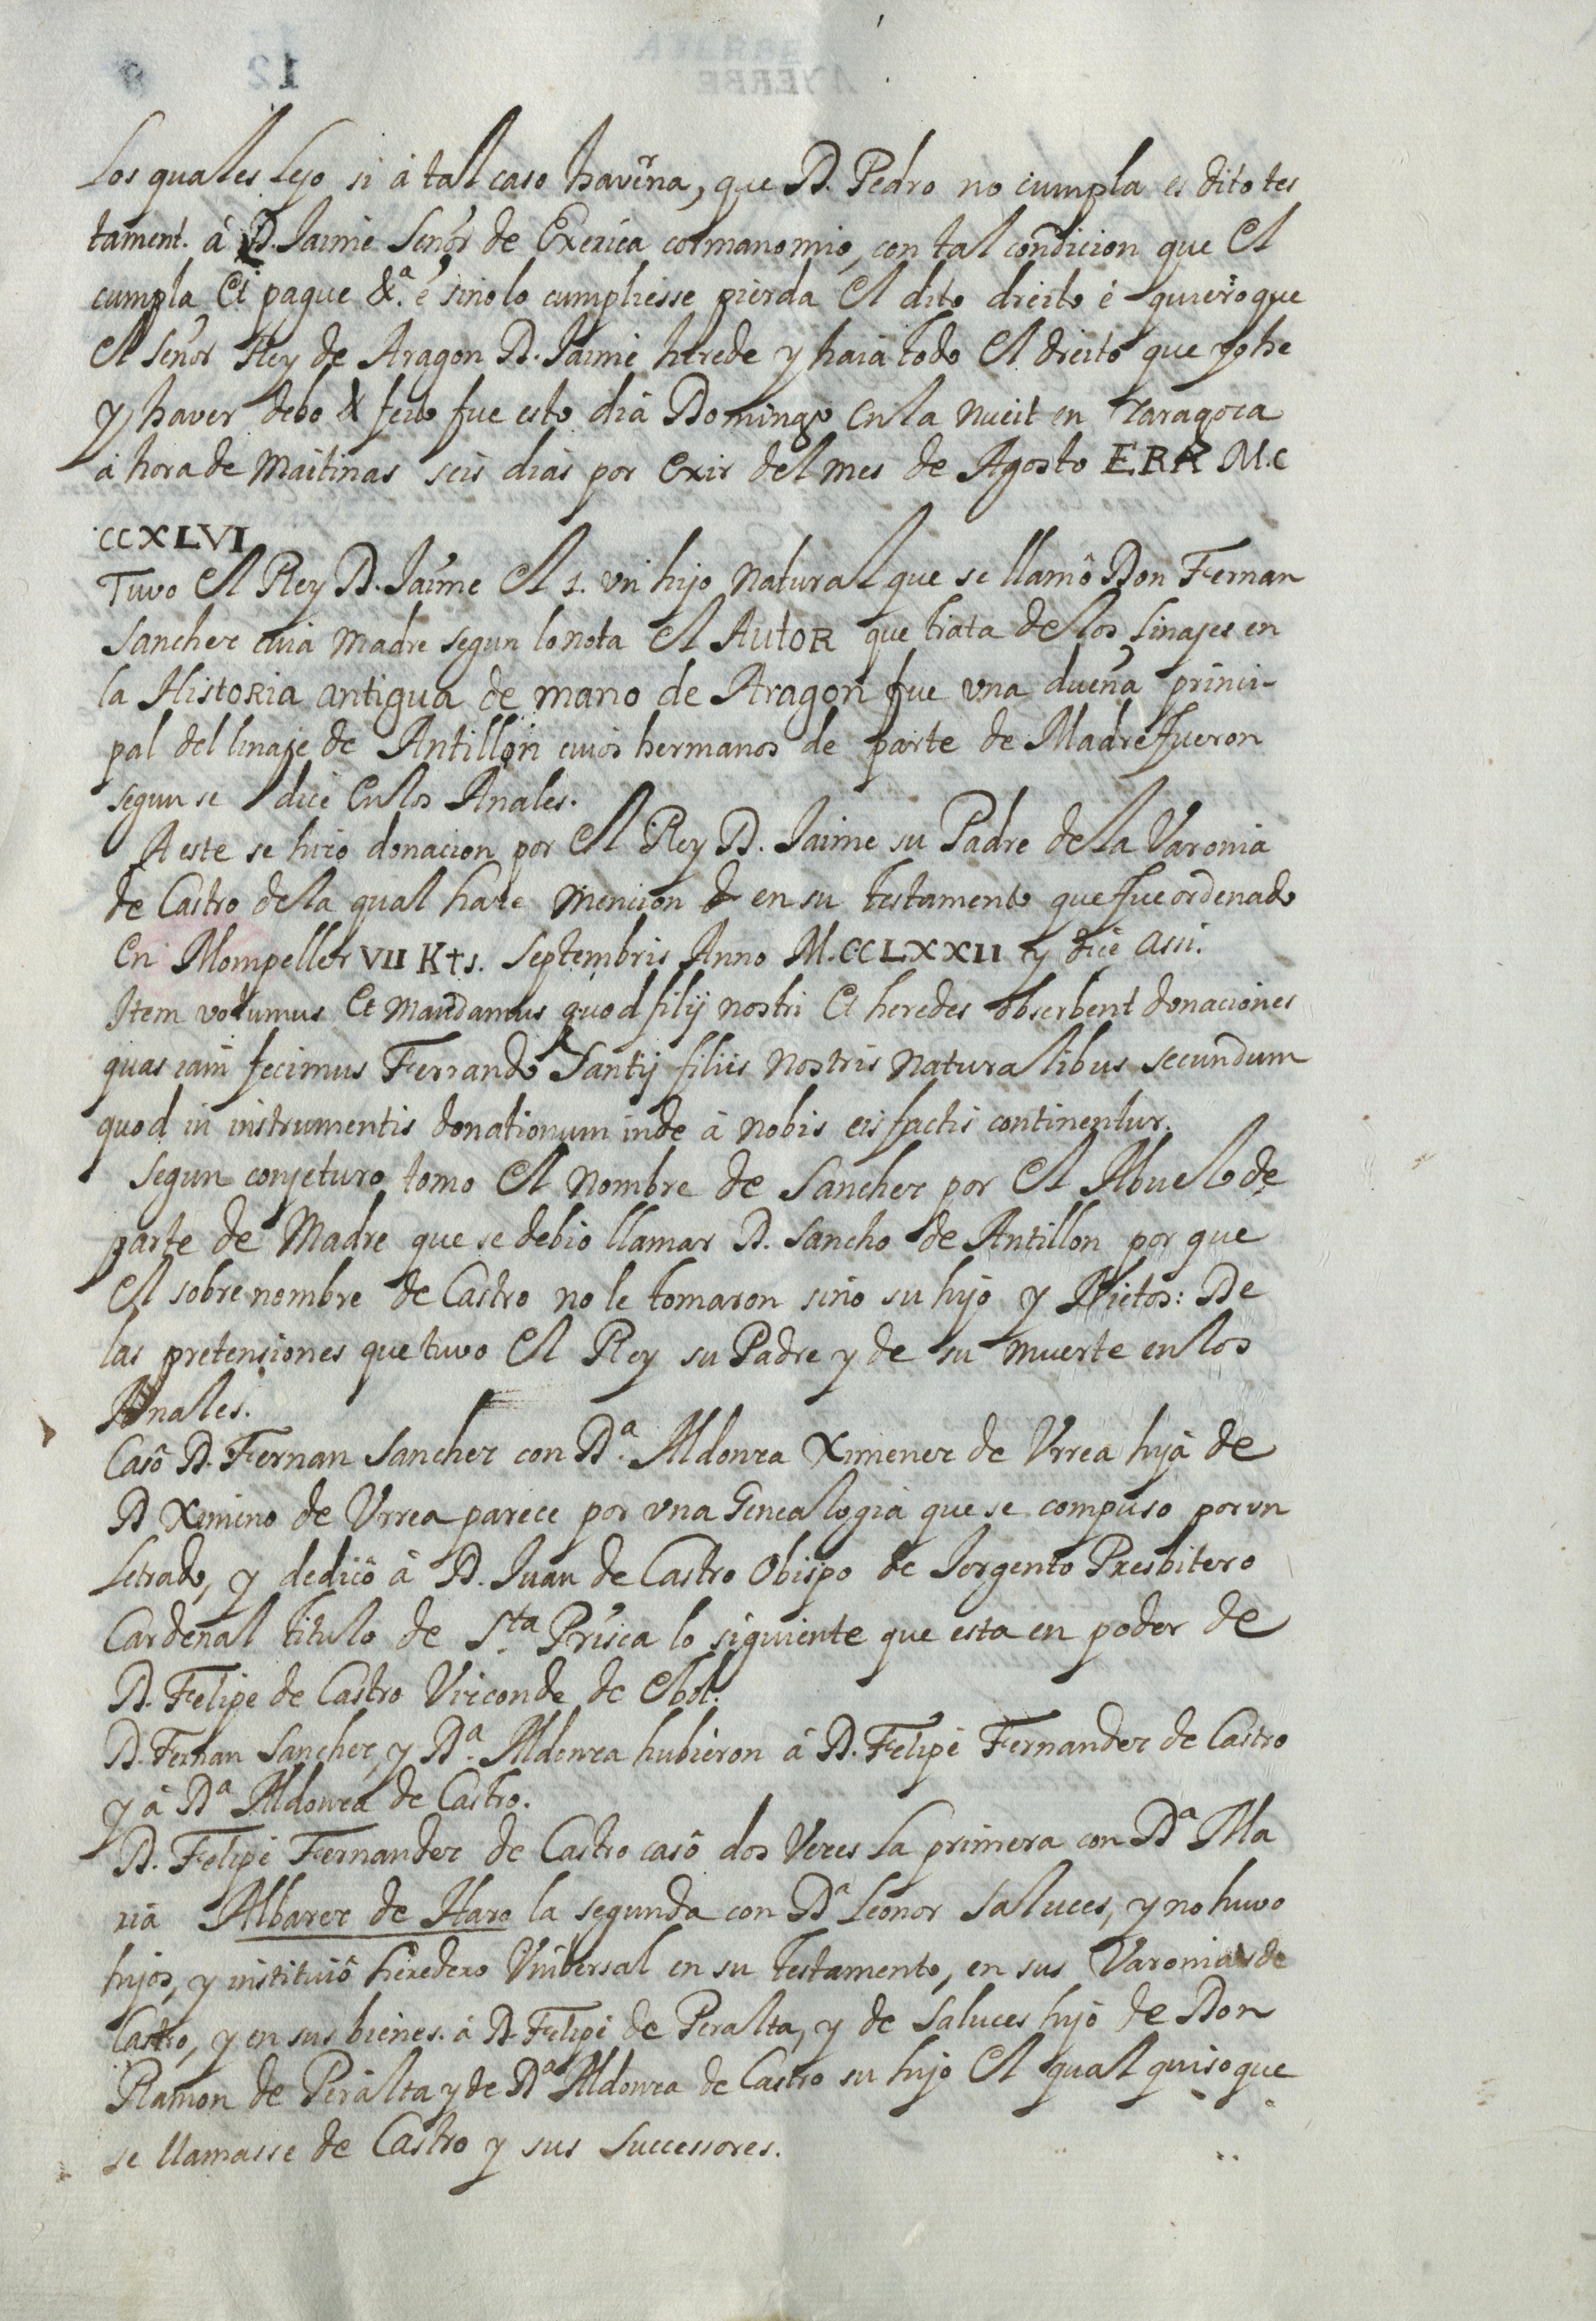 Los quales lejo si à tal caso haverna, que D. Pedro no cumpla es dito tes
tament. à D. Jaime Señor de Exerica cormanomio, con tal condicion que el
cumpla et pague &.ª é sino lo cumpliesse pierda el dito dreito é quiero que
el señor Rey de Aragon D. Jaime herede y haia todo el dreito que yo he
y haver debo & feito fue esto dia Domingo en la nueit en Zaragoza
à hora de Maitinas seis dias por exir del mes de Agosto ERA M.C
CCXLVI
Tuvo el Rey D. Jaime el 1. un hijo natural que se llamô Don Fernan
Sanchez cuia Madre segun lo nota el AutoR que trata de los Linajes en
la HistoRia antigua de mano de Aragon fue vna dueña princi-
pal del linaje de Antillon cuios hermanos de parte de Madre fueron
segun se dice en los Anales.
A este se hizo donacion por el Rey D. Jaime su Padre de la Varonia
de Castro de la qual haze mencion en su testamento que fue ordenado
en Mompeller VII Kts. Septembris Anno M.CCLXXII y dice assi.
Item volumus et mandamus quod filij nostri et heredes obserbent donaciones
quas iam fecimus Ferrando Santij filiis nostris naturalibus secundum
quod in instrumentis donationum inde à nobis eis factis continentur.
Segun conjeturo tomo el nombre de Sanchez por el Abuelo de
parte de Madre que se debio llamar D. Sancho de Antillon por que
el sobrenombre de Castro no le tomaron sino su hijo y Nietos: De
las pretensiones que tuvo el Rey su Padre y de su muerte en los
Anales.
Casô D. Fernan Sanchez con Dª. Aldonza Ximenez de Vrrea hija de
D Ximeno de Vrrea parece por vna Genealogia que se compuso por vn
Letrado, y dedicô à D. Juan de Castro Obispo de Jorgento Presbitero
Cardenal titulo de Sta Prisca lo siguiente que esta en poder de
D. Felipe de Castro Vizconde de Ebol.
D. Fernan Sanchez, y Dª. Aldonza hubieron â D. Felipe Fernandez de Castro
y â Dª Aldonza de Castro.
D. Felipe Fernandez de Castro casô dos Vezes la primera con Dª Ma
ria Albarez de Haro la segunda con Dª Leonor Saluces, y no huvo
hijos, y instituiô heredero Vniversal en su testamento, en sus Varonias de
Castro, y en sus bienes. à D. Felipe de Peralta, y de Saluces hijo de Don
Ramon de Peralta y de Dª Aldonza de Castro su hijo el qual quiso que
se llamasse de Castro y sus Successores.